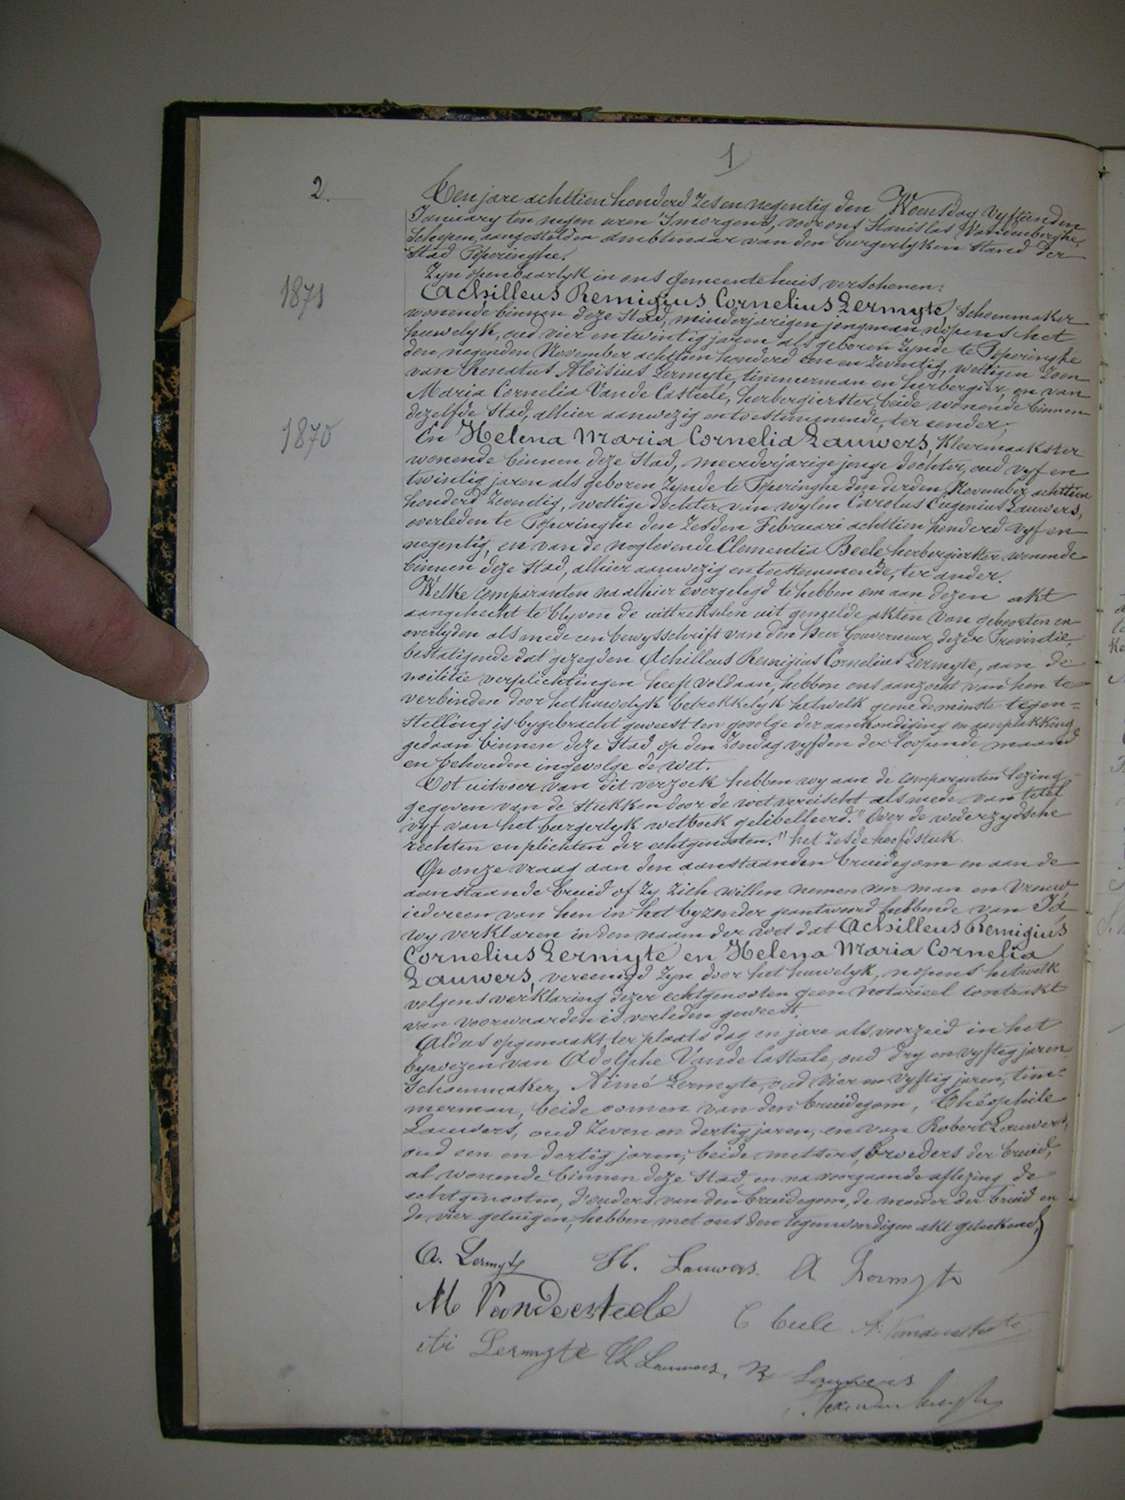 1
2.
Ten jare achttien honderd zes en negentig den Woensdag vyftienden
January ten negen uren 's morgens, voor ons Stanislas Vandenberghe,
Schepen, aangestelden ambtenaar van den burgerlyken stand der
Stad Poperinghe.
Zyn openbaarlyk in ons gemeentehuis verschenen:
1871
Achilleus Remigius Cornelius Lermyte, schoenmaker
wonende binnen deze Stad, minderjarigen jongman nopens het
huwelyk, oud vier en twintig jaren als geboren zynde te Poperinghe
den negenden November achttien honderd een en zeventig, wettigen zoon
van Renatus Aloisius Lermyte, timmerman en herbergier, en van
Maria Cornelia Vande Casteele, herbergierster beide wonende binnen
dezelfde Stad, alhier aanwezig en toestemmende, ter eender;
1870
En Helena Maria Cornelia Lauwers, Kleermaakster
wonende binnen deze Stad, meerderjarige jonge dochter, oud vyf en
twintig jaren als geboren zynde te Poperinghe den derden November achttien
honderd zeventig, wettige dochter van wylen Carolus Eugenius Lauwers,
overleden te Poperinghe den zesden Februari achttien honderd vyf en
negentig, en van de nog levende Clementia Beele herbergierster wonende
binnen deze Stad, alhier aanwezig en toestemmende, ter ander.
Welke comparanten na alhier overgelegd te hebben om aan dezen akt
aangehecht te blyven de uittrekselen uit gemelde akten van geboorten en
overlyden alsmede een bewysschrift van den Heer Gouverneur dezer Provincie,
bestatigende dat gezegden Achilleus Remigius Cornelius Lermyte, aan de
militie verplichtingen heeft voldaan, hebben ons aanzocht van hen te
verbinden door het huwelyk betrekkelyk hetwelk geene de minste tegen=
stelling is bygebracht geweest ten gevolge der aankondiging en aanplakking
gedaan binnen deze Stad op den Zondag vyfden der loopende maand
en behouden ingevolge de wet.
Tot uitvoer van dit verzoek hebben wy aan de comparanten lezing
gegeven van de stukken door de wet vereischt alsmede van titel
vyf van het burgerlyk wetboek gelibelleerd: "Over de wederzydsche
rechten en plichten der echtgenooten." het zesde hoofdstuk.
Op onze vraag aan den aanstaanden bruidegom en aan de
aanstaande bruid of zy zich willen nemen voor man en vrouw
iedereen van hen in het byzonder geantwoord hebbende van Ja
wy verklaren in den naam der wet dat Achilleus Remigius
Cornelius Lermyte en Helena Maria Cornelia
Lauwers, vereenigd zyn door het huwelyk, nopens hetwelk
volgens verklaring dezer echtgenooten geen notarieel contrakt
van voorwaarden is verleden geweest.
Aldus opgemaakt ter plaats dag en jare als voorzeid in het
bywezen van Adolphe Vande Casteele, oud dry en vyftig jaren
Schoenmaker, Aimé Lermyte, oud vier en vyftig jaren, tim=
merman, beide oomen van den bruidegom, Théophile
Lauwers, oud zeven en dertig jaren, en van Robert Lauwers,
oud een en dertig jaren, beide metsers, broeders der bruid,
al wonende binnen deze Stad, en na voorgaande aflezing de
echtgenooten, d'ouders van den bruidegom, de moeder der bruid en
de vier getuigen, hebben met ons den tegenwoordigen akt geteekend,
A. Lermyte H. Lauwers. A Lermyte
M Vandecasteele C beele A. Vandecasteele
Lermyte Th Lauwers, R Lauwers